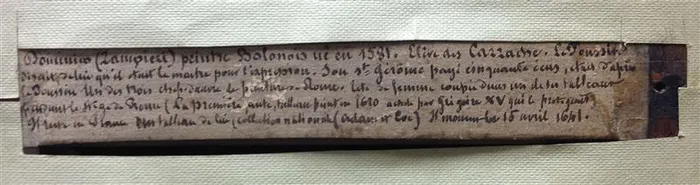 Dominico (Zampieri) peintre Bolonois né en 1581. Elève des Carrache. Le Poussin
disait de lui qu'il était le maitre pour l'expression. Son St Gérôme payé cinquante écus, était d'après
le Poussin un des trois chefs d'œuvre de peinture Rome. tête de femme coupée dans un de ses tableaux
pendant le siège de Rome (La première tableau peint en 1610 acheté par Grégoire XV qui le protégeait
Il reste en France un tableau de lui (collection nationale (Adam et Eve) Il mourut le 15 avril 1641.